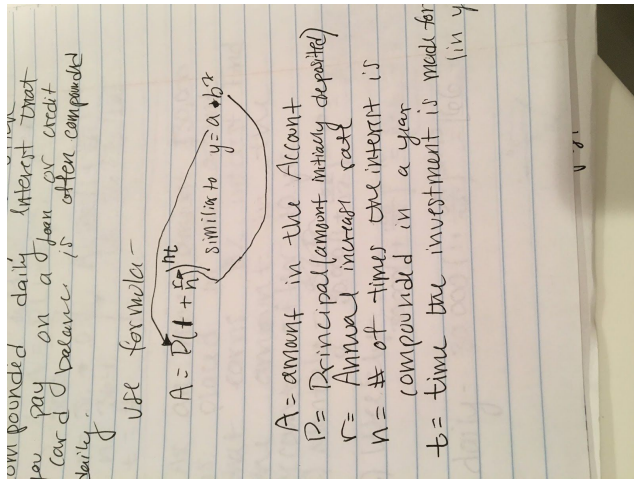 ompounded daily interest that
you pay on a loan or credit
card balance is often compounded
daily.
use formula -
A = P(1 + r/n)^nt similiar to y = a • b^x
A = amount in the Account
P = Principal (amount initially deposited)
r = Annual increase rate
n = # of times the interest is
compounded in a year
t = time the investment is made for
(in y